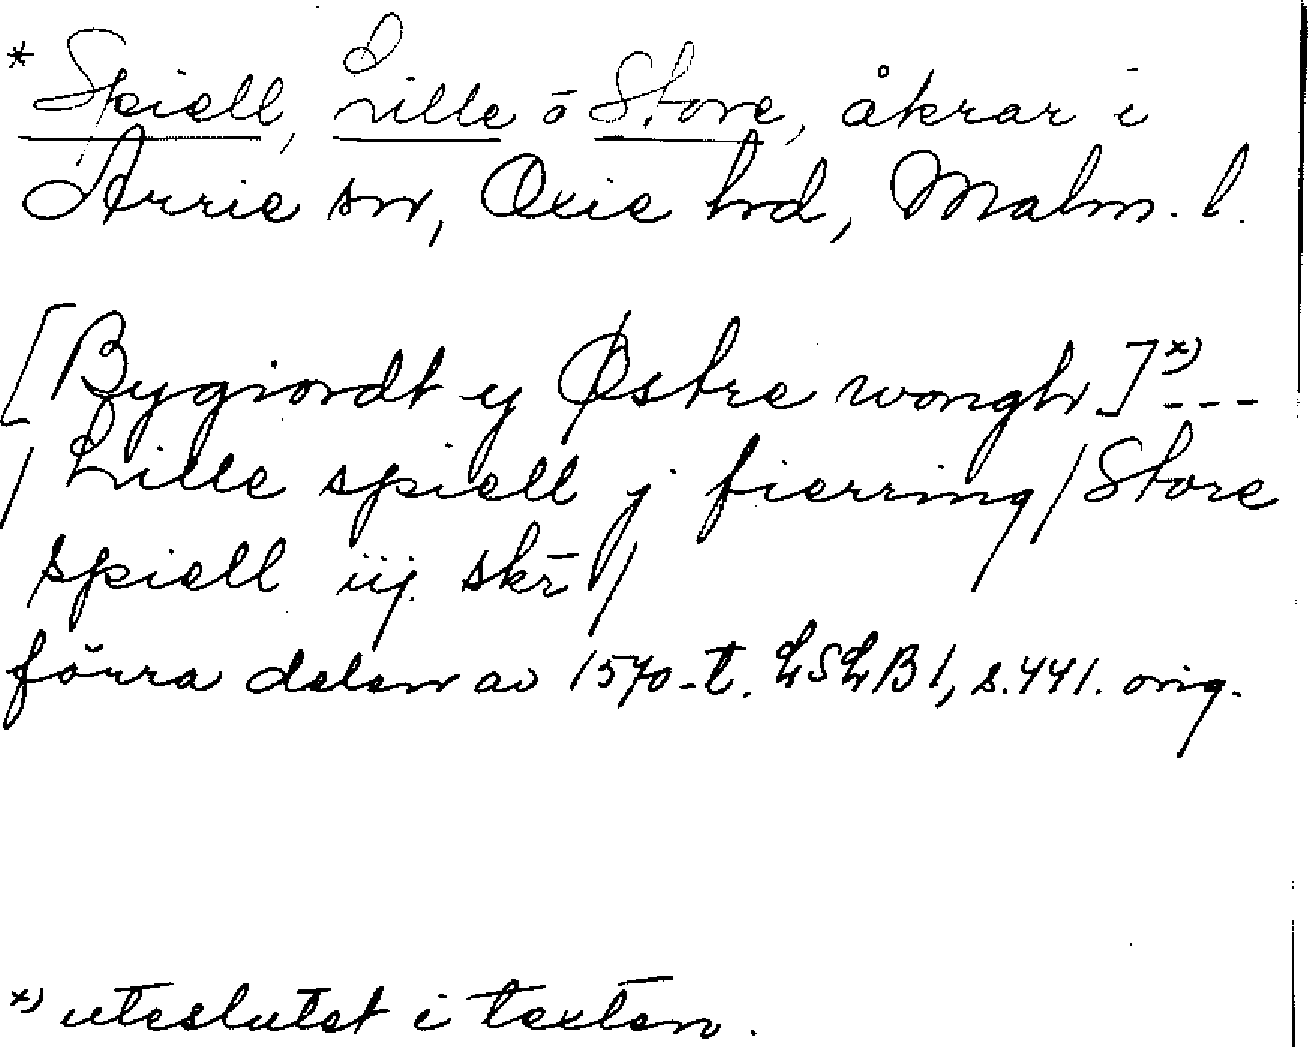 * Spiell, Lille o Store, åkrar i
Arrie sn, Oxie hd, Malm. l.
[Bygiordt y Østre wongh]*)---
/ Lille spiell j fierring / Store
spiell iij skr̄ /
förra delen av 1570-t. LSLB 1, s. 441. orig.
*) uteslutet i texten.